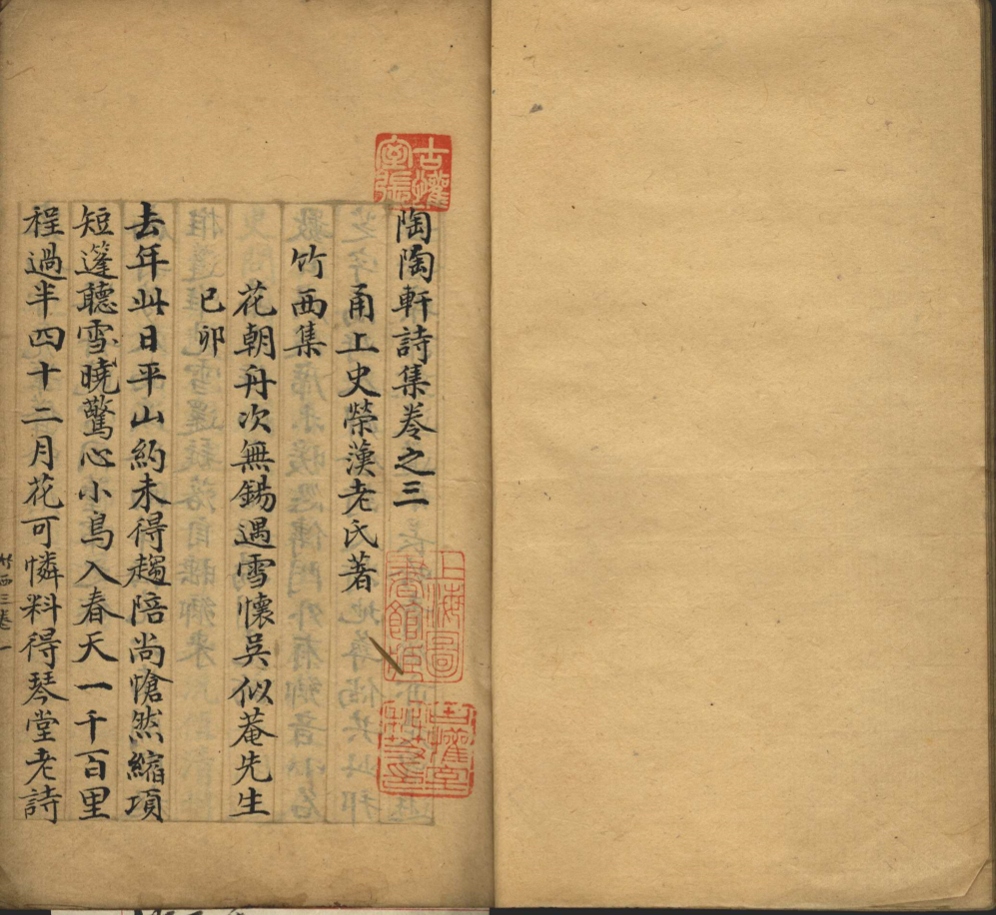 陶陶軒詩集卷之三
甬上史榮漢老氏著
竹西集
花朝舟次無錫遇雪懷吳似菴先生
已卯
去年此日平山約未得趨陪尚愴然縮項
短篷聽雪曉驚心小鳥入春天一千百里
程過半四十二月花可憐料得琴堂老詩
竹西三卷一
古懽室張
上海圖書館藏